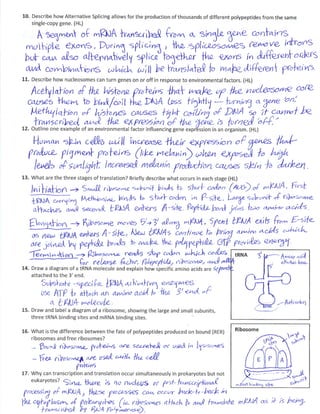 10. Describe how Alternative Splicing allows for the production of thousands of different polypeptides from the same
single-copy gene. (HL)
A segment of mRNA transcribed from a single gene contains
multiple exons. During splicing, the spliceosomes remove introns
but can also alternatively splice together the exons in different orders
and combinations which will be translated to make different proteins.
11. Describe how nucleosomes can turn genes on or off in response to environmental factors. (HL)
Acetylation of the histone proteins that make up the nucleosome core
causes them to bind/coil the DNA less tightly — turning a gene "on"
Methylation of histones causes tight coiling of DNA so it cannot be
transcribed and the expression of the gene is turned off."
12. Outline one example of an environmental factor influencing gene expression in an organism. (HL)
Human skin cells will increase their expression of genes that
produce pigment proteins (like melanin) when exposed to high
levels of sunlight. Increased melanin production causes skin to darken
13. What are the three stages of translation? Briefly describe what occurs in each stage (HL)
Initiation → Small ribosome subunit binds to start codon (AUG) of mRNA. First
tRNA carrying Methionine binds to start codon in P-site. Large subunit of ribosome
attaches and second tRNA enters A-site. Peptide bond joins two amino acids
Elongation → Ribosome moves 5'→3' along mRNA. Spent tRNA exits from E-site
as new tRNA enters A-site. New tRNAs continue to bring amino acids which
are joined by peptide bonds to make the polypeptide. GTP provides energy
Termination → Ribosome reads stop codon which codes
for release factor. Polypeptide, ribosome, and mRNA
14. Draw a diagram of a tRNA molecule and explain how specific amino acids are
attached to the 3' end.
Substrate-specific tRNA activating enzymes
use ATP to attach an amino acid to the 3' end of
a tRNA molecule.
15. Draw and label a diagram of a ribosome, showing the large and small subunits,
three tRNA binding sites and mRNA binding sites.
16. What is the difference between the fate of polypeptides produced on bound (RER)
ribosomes and free ribosomes?
- Bound ribosome proteins are secreted or used in lysosomes
- Free ribosome proteins are used within the cell
17. Why can transcription and translation occur simultaneously in prokaryotes but not
eukaryotes? Since there is no nucleus or post-transcriptional
processing of mRNA, these processes can occur back-to-back in
the cytoplasm of prokaryotes (ie. ribosomes attach to and translate mRNA as it is being
transcribed by RNA Polymerase).
tRNA
Amino acid
Anticodon
Ribosome
E P A